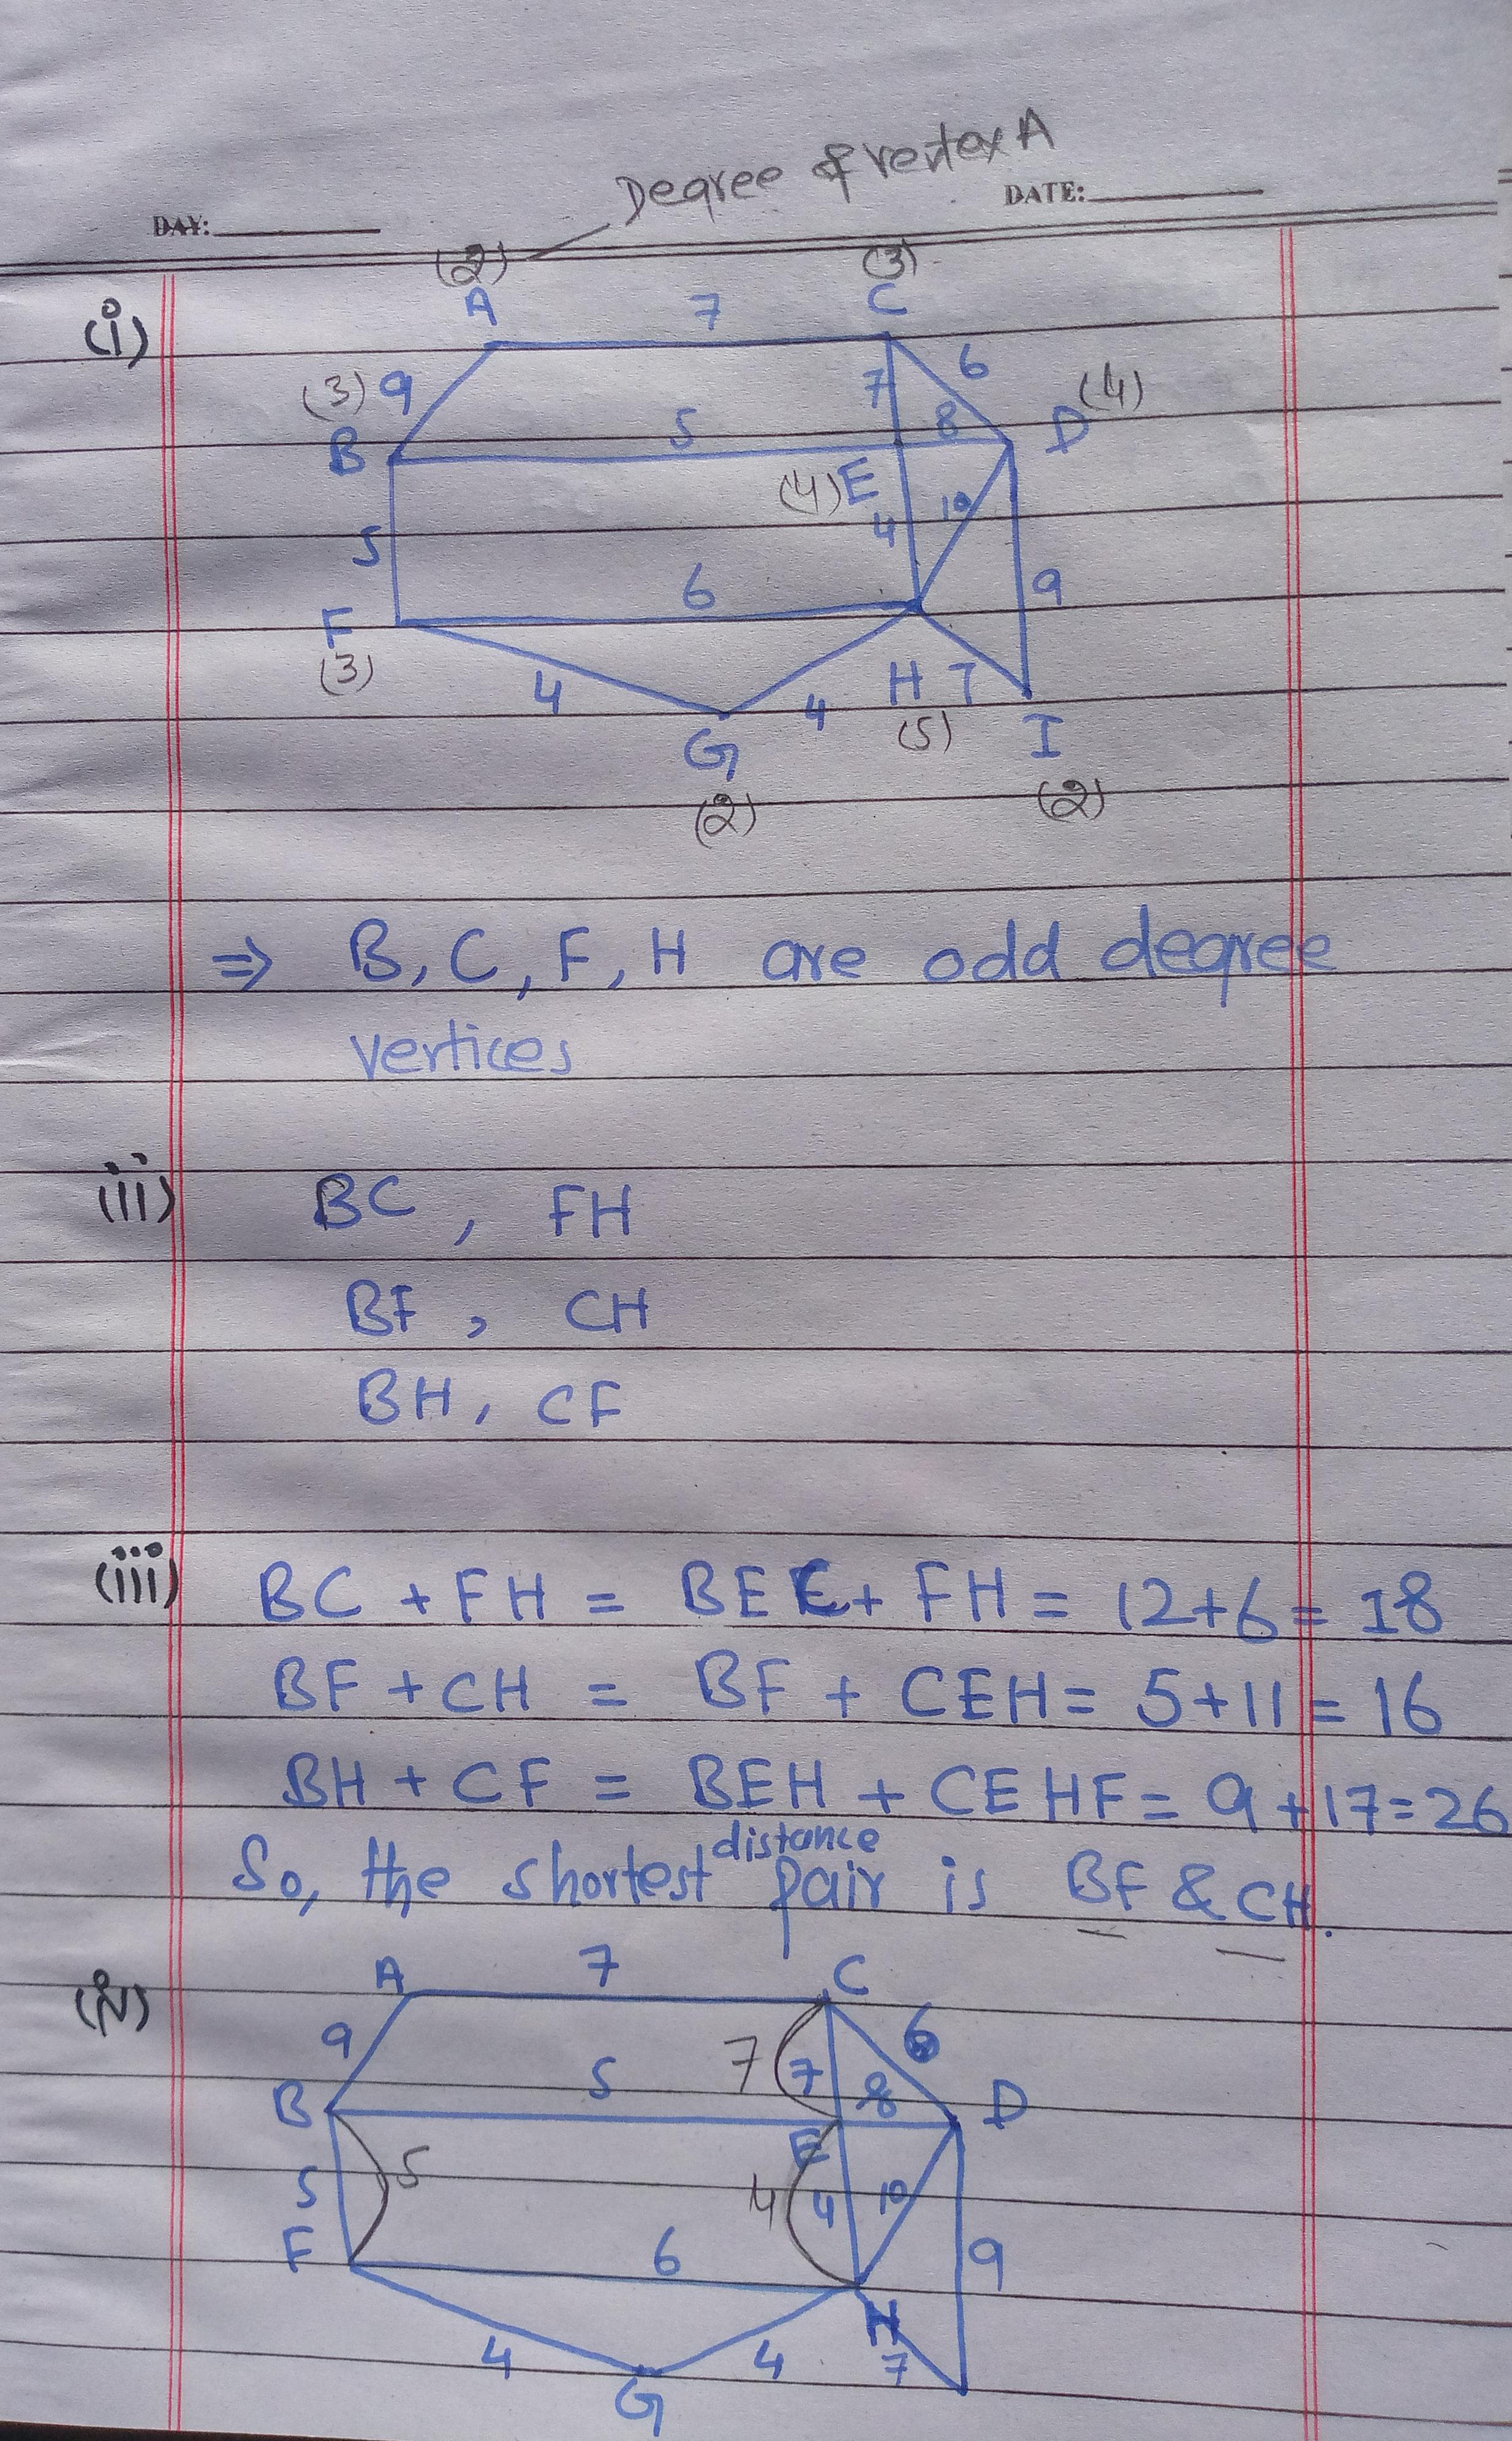 Degree of vertex A
DAY: DATE:
(2) (3)
(i) A 7 C
(3) 9 7 6 (4)
B 5 8 D
(4) E
5 4 10
6 9
F
(3) 4 4 H 7
G (5) I
(2) (2)
⇒ B, C, F, H are odd degree
vertices
(ii) BC, FH
BF, CH
BH, CF
(iii) BC + FH = BEC + FH = 12+6 = 18
BF + CH = BF + CEH = 5+11 = 16
BH + CF = BEH + CEHF = 9+17=26
So, the shortest distance pair is BF & CH.
(iv) A 7 C
9 5 7 7 6
B 8 D
E
5 5 4 4 10
F 6 9
H
4 4 7
G